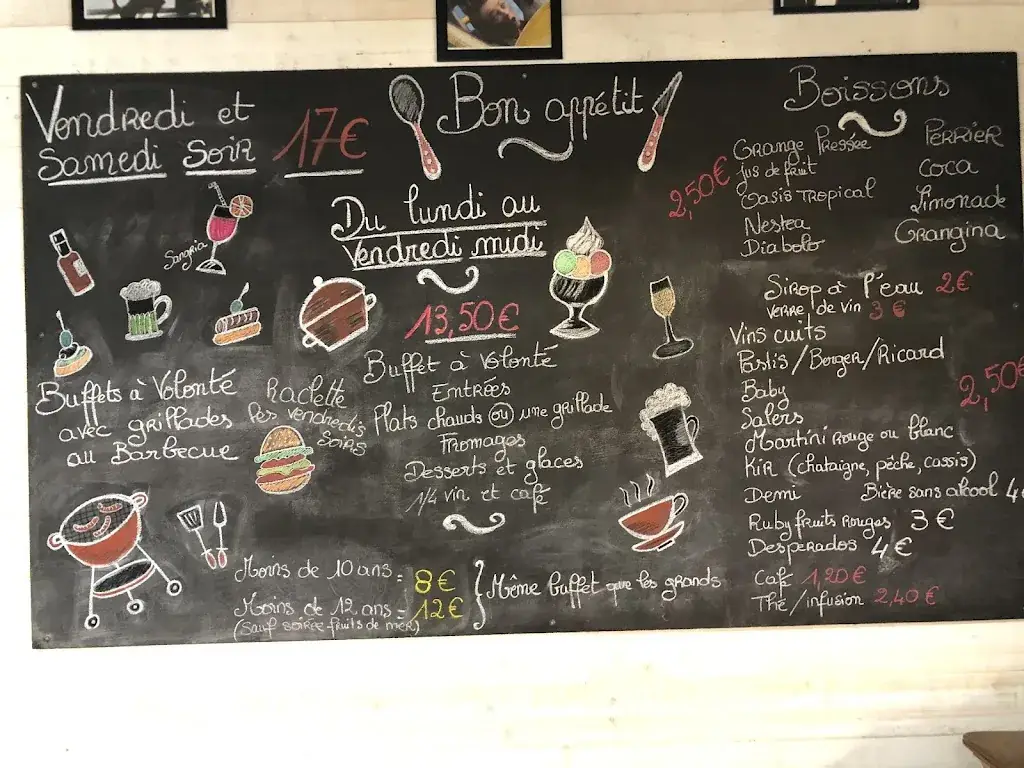 Vendredi et
Samedi Soir 17€
Sangria
Buffets à Volonté
avec grillades
au Barbecue
Raclette
les vendredis
soirs
Bon appétit
Du lundi au
Vendredi midi
13,50€
Buffet à Volonté
Entrées
Plats chauds ou une grillade
Fromages
Desserts et glaces
1/4 vin et café
Moins de 10 ans = 8€
Moins de 12 ans = 12€
(sauf soirée fruits de mer)
Même buffet que les grands
Boissons
Orange Pressée
Jus de fruit
Oasis Tropical
Nestea
Diabolo
2,50€
Perrier
Coca
Limonade
Orangina
Sirop à l'eau 2€
verre de vin 3€
Vins cuits
Pastis/Berger/Ricard
Baby
Salers
Martini Rouge ou blanc
Kir (chataigne, pêche, cassis)
2,50€
Demi Bière sans alcool
Ruby fruits Rouges 3€
Desperados 4€
Café 1,20€
Thé/infusion 2,40€